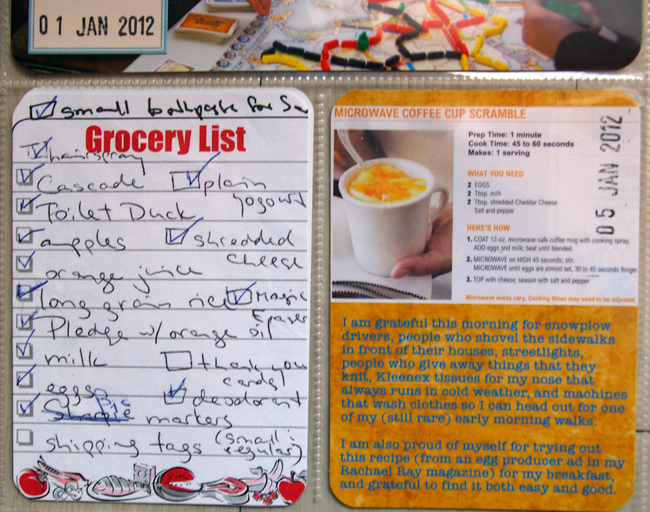 01 JAN 2012
small toothpaste for
Grocery List
hairspray
Cascade plain
Toilet Duck yogourt
apples shredded
cheese
orange juice
long grain rice Magic
Eraser
Pledge w/orange oil
milk thank you
cards
eggs deodorant
Bic
Sharpie markers
shipping tags (small;
regular)
MICROWAVE COFFEE CUP SCRAMBLE
05 JAN 2012
Prep Time: 1 minute
Cook Time: 45 to 60 seconds
Makes: 1 serving
WHAT YOU NEED
2 EGGS
2 Tbsp. milk
2 Tbsp. shredded Cheddar Cheese
Salt and pepper
HERE'S HOW
1. COAT 12-oz. microwave-safe coffee mug with cooking spray.
ADD eggs and milk; beat until blended.
2. MICROWAVE on HIGH 45 seconds; stir.
MICROWAVE until eggs are almost set, 30 to 45 seconds longer.
3. TOP with cheese, season with salt and pepper.
Microwave ovens vary. Cooking times may need to be adjusted.
I am grateful this morning for snowplow
drivers, people who shovel the sidewalks
in front of their houses, streetlights,
people who give away things that they
knit, Kleenex tissues for my nose that
always runs in cold weather, and machines
that wash clothes so I can head out for one
of my (still rare) early morning walks.
I am also proud of myself for trying out
this recipe (from an egg producer ad in my
Rachael Ray magazine) for my breakfast,
and grateful to find it both easy and good.